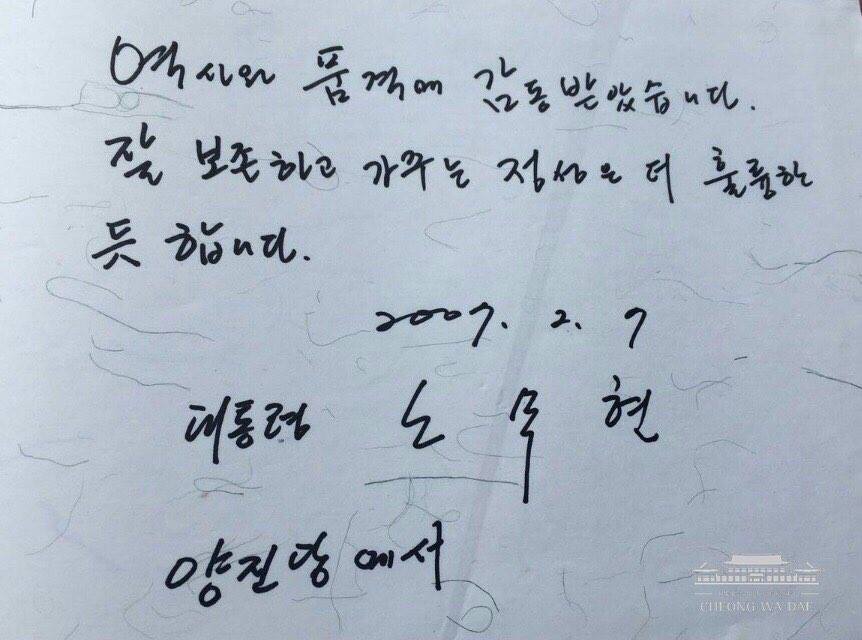 역사와 품격에 감동 받았습니다.
잘 보존하고 가꾸는 정성은 더 훌륭한
듯 합니다.
2007. 2. 7
대통령 노무현
양진당에서
CHEONG WA DAE